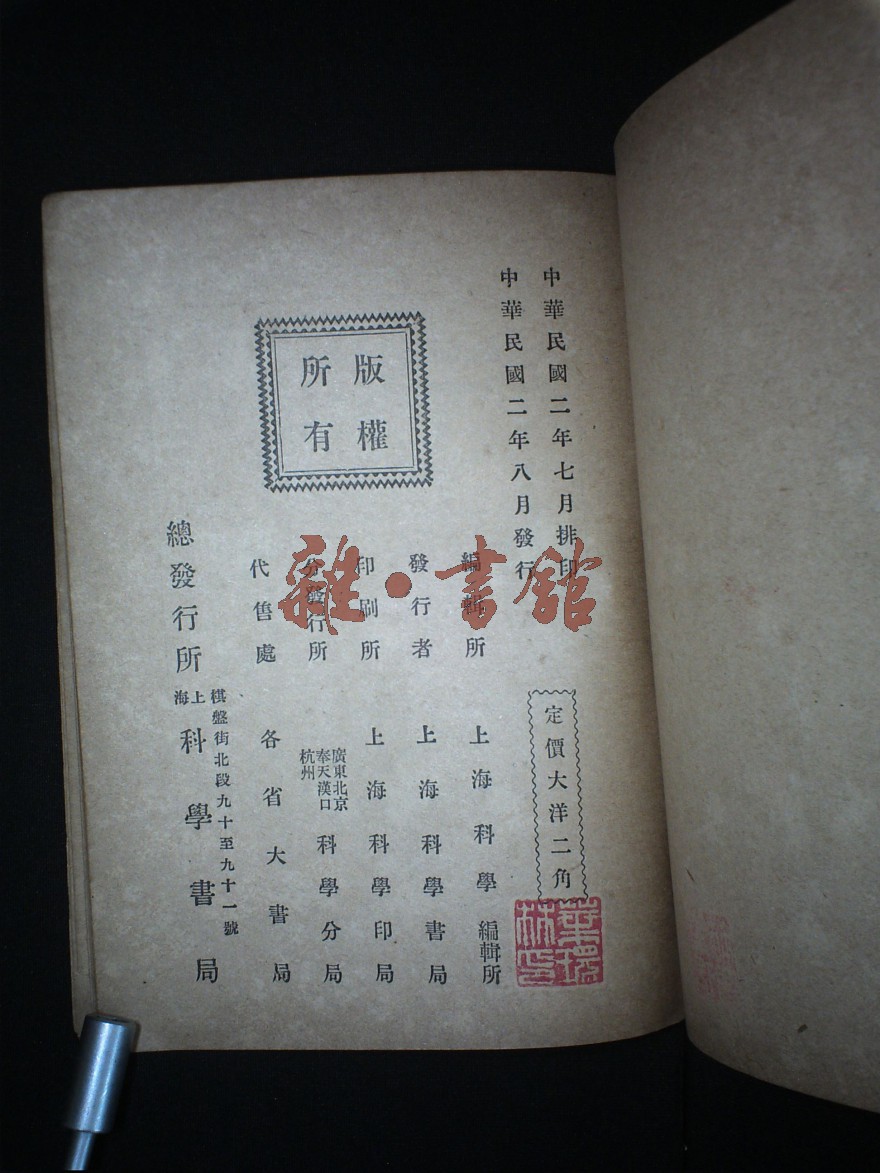 中華民國二年七月排印
中華民國二年八月發行
定價大洋二角
版權
所有
編輯所 上海科學編輯所
發行者 上海科學書局
印刷所 上海科學印局
分發行所 廣東北京奉天漢口杭州 科學分局
代售處 各省大書局
棋盤街北段九十至九十一號
總發行所 上海 科學書局
雜·書館